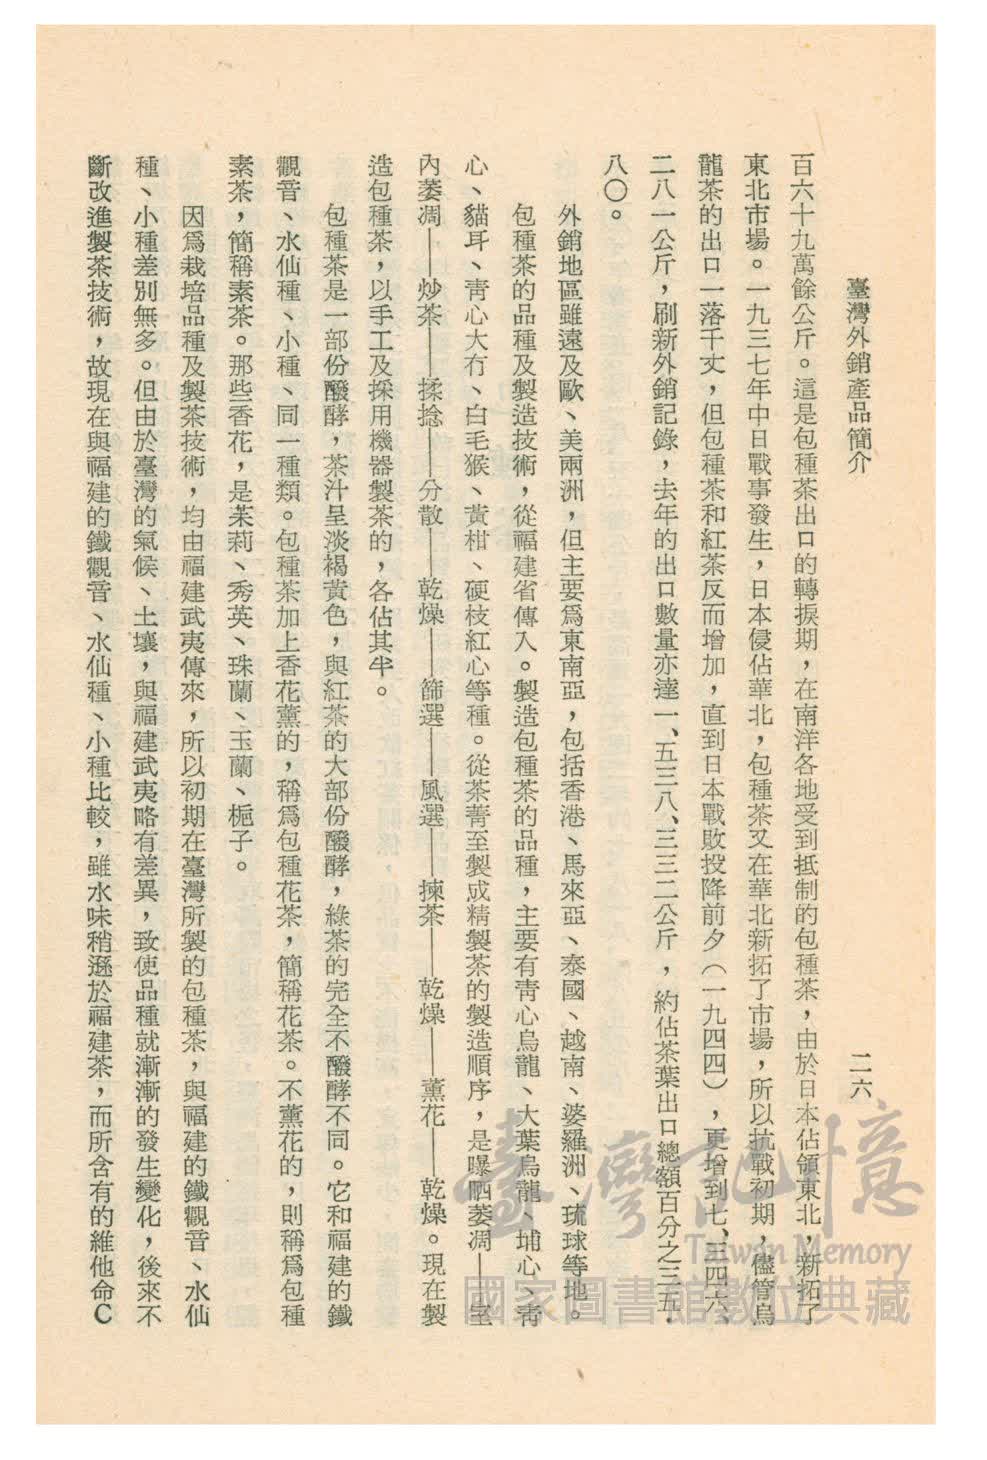 臺灣外銷產品簡介
二六
百六十九萬餘公斤。這是包種茶出口的轉捩期，在南洋各地受到抵制的包種茶，由於日本佔領東北，新拓了
東北市場。一九三七年中日戰事發生，日本侵佔華北，包種茶又在華北新拓了市場，所以抗戰初期，儘管烏
龍茶的出口一落千丈，但包種茶和紅茶反而增加，直到日本戰敗投降前夕（一九四四），更增到七、三四六、
二八一公斤，刷新外銷記錄，去年的出口數量亦達一、五三八、三三二公斤，約佔茶葉出口總額百分之三五．
八〇。
外銷地區雖遠及歐、美兩洲，但主要爲東南亞，包括香港、馬來亞、泰國、越南、婆羅洲、琉球等地。
包種茶的品種及製造技術，從福建省傳入。製造包種茶的品種，主要有青心烏龍、大葉烏龍、埔心、青
心、貓耳、青心大冇、白毛猴、黃柑、硬枝紅心等種。從茶菁至製成精製茶的製造順序，是曝晒萎凋——室
內萎凋——炒茶——揉捻——分散——乾燥——篩選——風選——揀茶——乾燥——薰花——乾燥。現在製
造包種茶，以手工及採用機器製茶的，各佔其半。
包種茶是一部份醱酵，茶汁呈淡褐黃色，與紅茶的大部份醱酵，綠茶的完全不醱酵不同。它和福建的鐵
觀音、水仙種、小種、同一種類。包種茶加上香花薰的，稱爲包種花茶，簡稱花茶。不薰花的，則稱爲包種
素茶，簡稱素茶。那些香花，是茉莉、秀英、珠蘭、玉蘭、梔子。
因爲栽培品種及製茶技術，均由福建武夷傳來，所以初期在臺灣所製的包種茶，與福建的鐵觀音、水仙
種、小種差別無多。但由於臺灣的氣候、土壤，與福建武夷略有差異，致使品種就漸漸的發生變化，後來不
斷改進製茶技術，故現在與福建的鐵觀音、水仙種、小種比較，雖水味稍遜於福建茶，而所含有的維他命C
臺灣記憶
Taiwan Memory
國家圖書館數位典藏